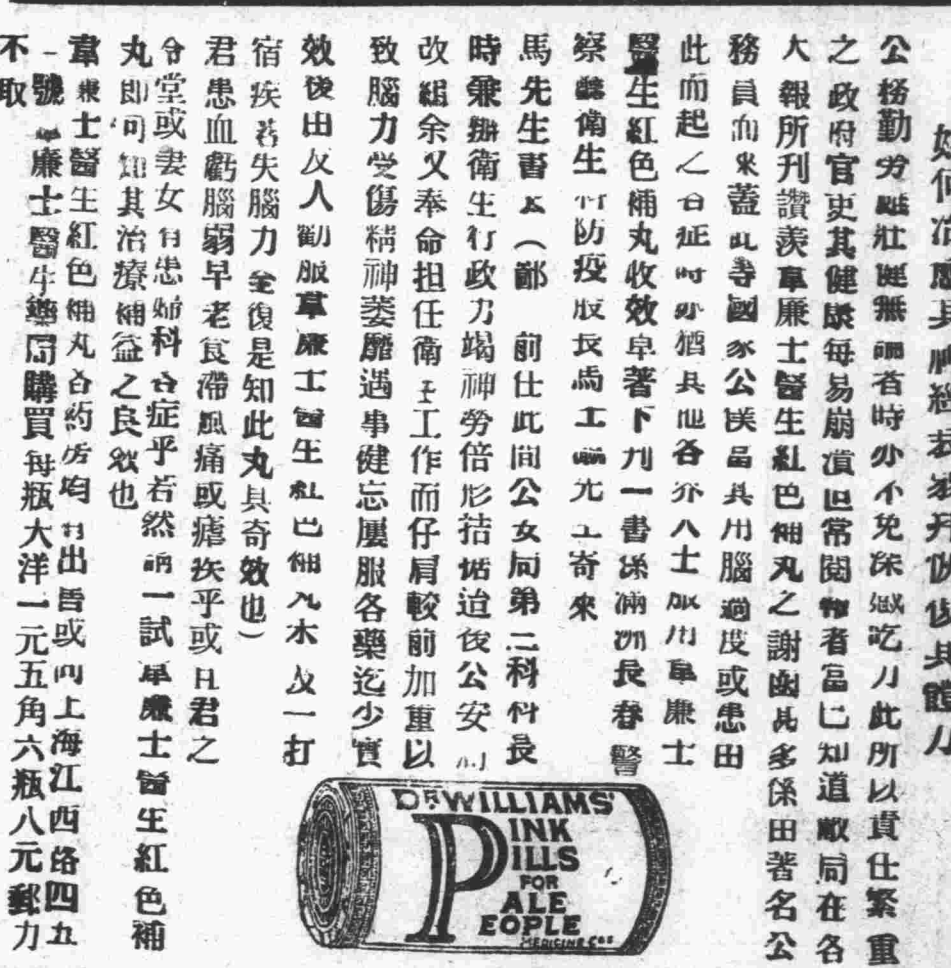 公務勤勞雖壯健無　者時亦不免深感吃力此所以責任繁重
之政府官吏其健康每易崩潰但常閱報者當已知道敝局在各
大報所刊讚羨韋廉士醫生紅色補丸之謝函其多係由著名公
務員而來蓋此等國家公僕因其用腦過度或患由
此而起之各症時亦猶其他各界人士服用韋廉士
醫生紅色補丸收效卓著下列一書係滿洲長春警
察廳衛生科防疫股長馬工　先生寄來
馬先生書云（鄙　前任此間公安局第二科科長
時兼辦衛生行政力竭神勞倍形拮据迨後公安局
改組余又奉命担任衛生工作而仔肩較前加重以
致腦力受傷精神萎靡遇事健忘屢服各藥迄少實
效後由友人勸服韋廉士醫生紅色補丸未及一打
宿疾若失腦力全復是知此丸具奇效也）
君患血虧腦弱早老食滯風痛或瘧疾乎或且君之
令堂或妻女有患婦科各症乎若然請一試韋廉士醫生紅色補
丸即可知其治療補益之良效也
韋廉士醫生紅色補丸各藥房均有出售或向上海江西路四五
一號韋廉士醫生藥局購買每瓶大洋一元五角六瓶八元郵力
不取
DR WILLIAMS'
PINK
PILLS
FOR
PALE
PEOPLE
MEDICINE Cos